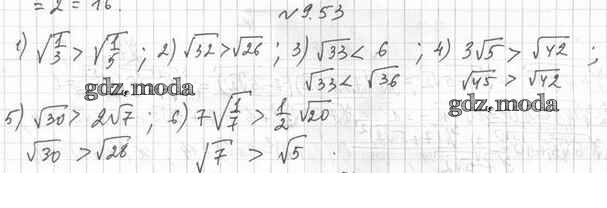 = 2 = 16.
№9.53
1) √1/3 > √1/5 ; 2) √32 > √26 ; 3) √33 < 6 ; 4) 3√5 > √42 ;
√33 < √36 √45 > √42
gdz.moda
gdz.moda
5) √30 > 2√7 ; 6) 7√1/7 > 1/2 √20
√30 > √28 √7 > √5 .